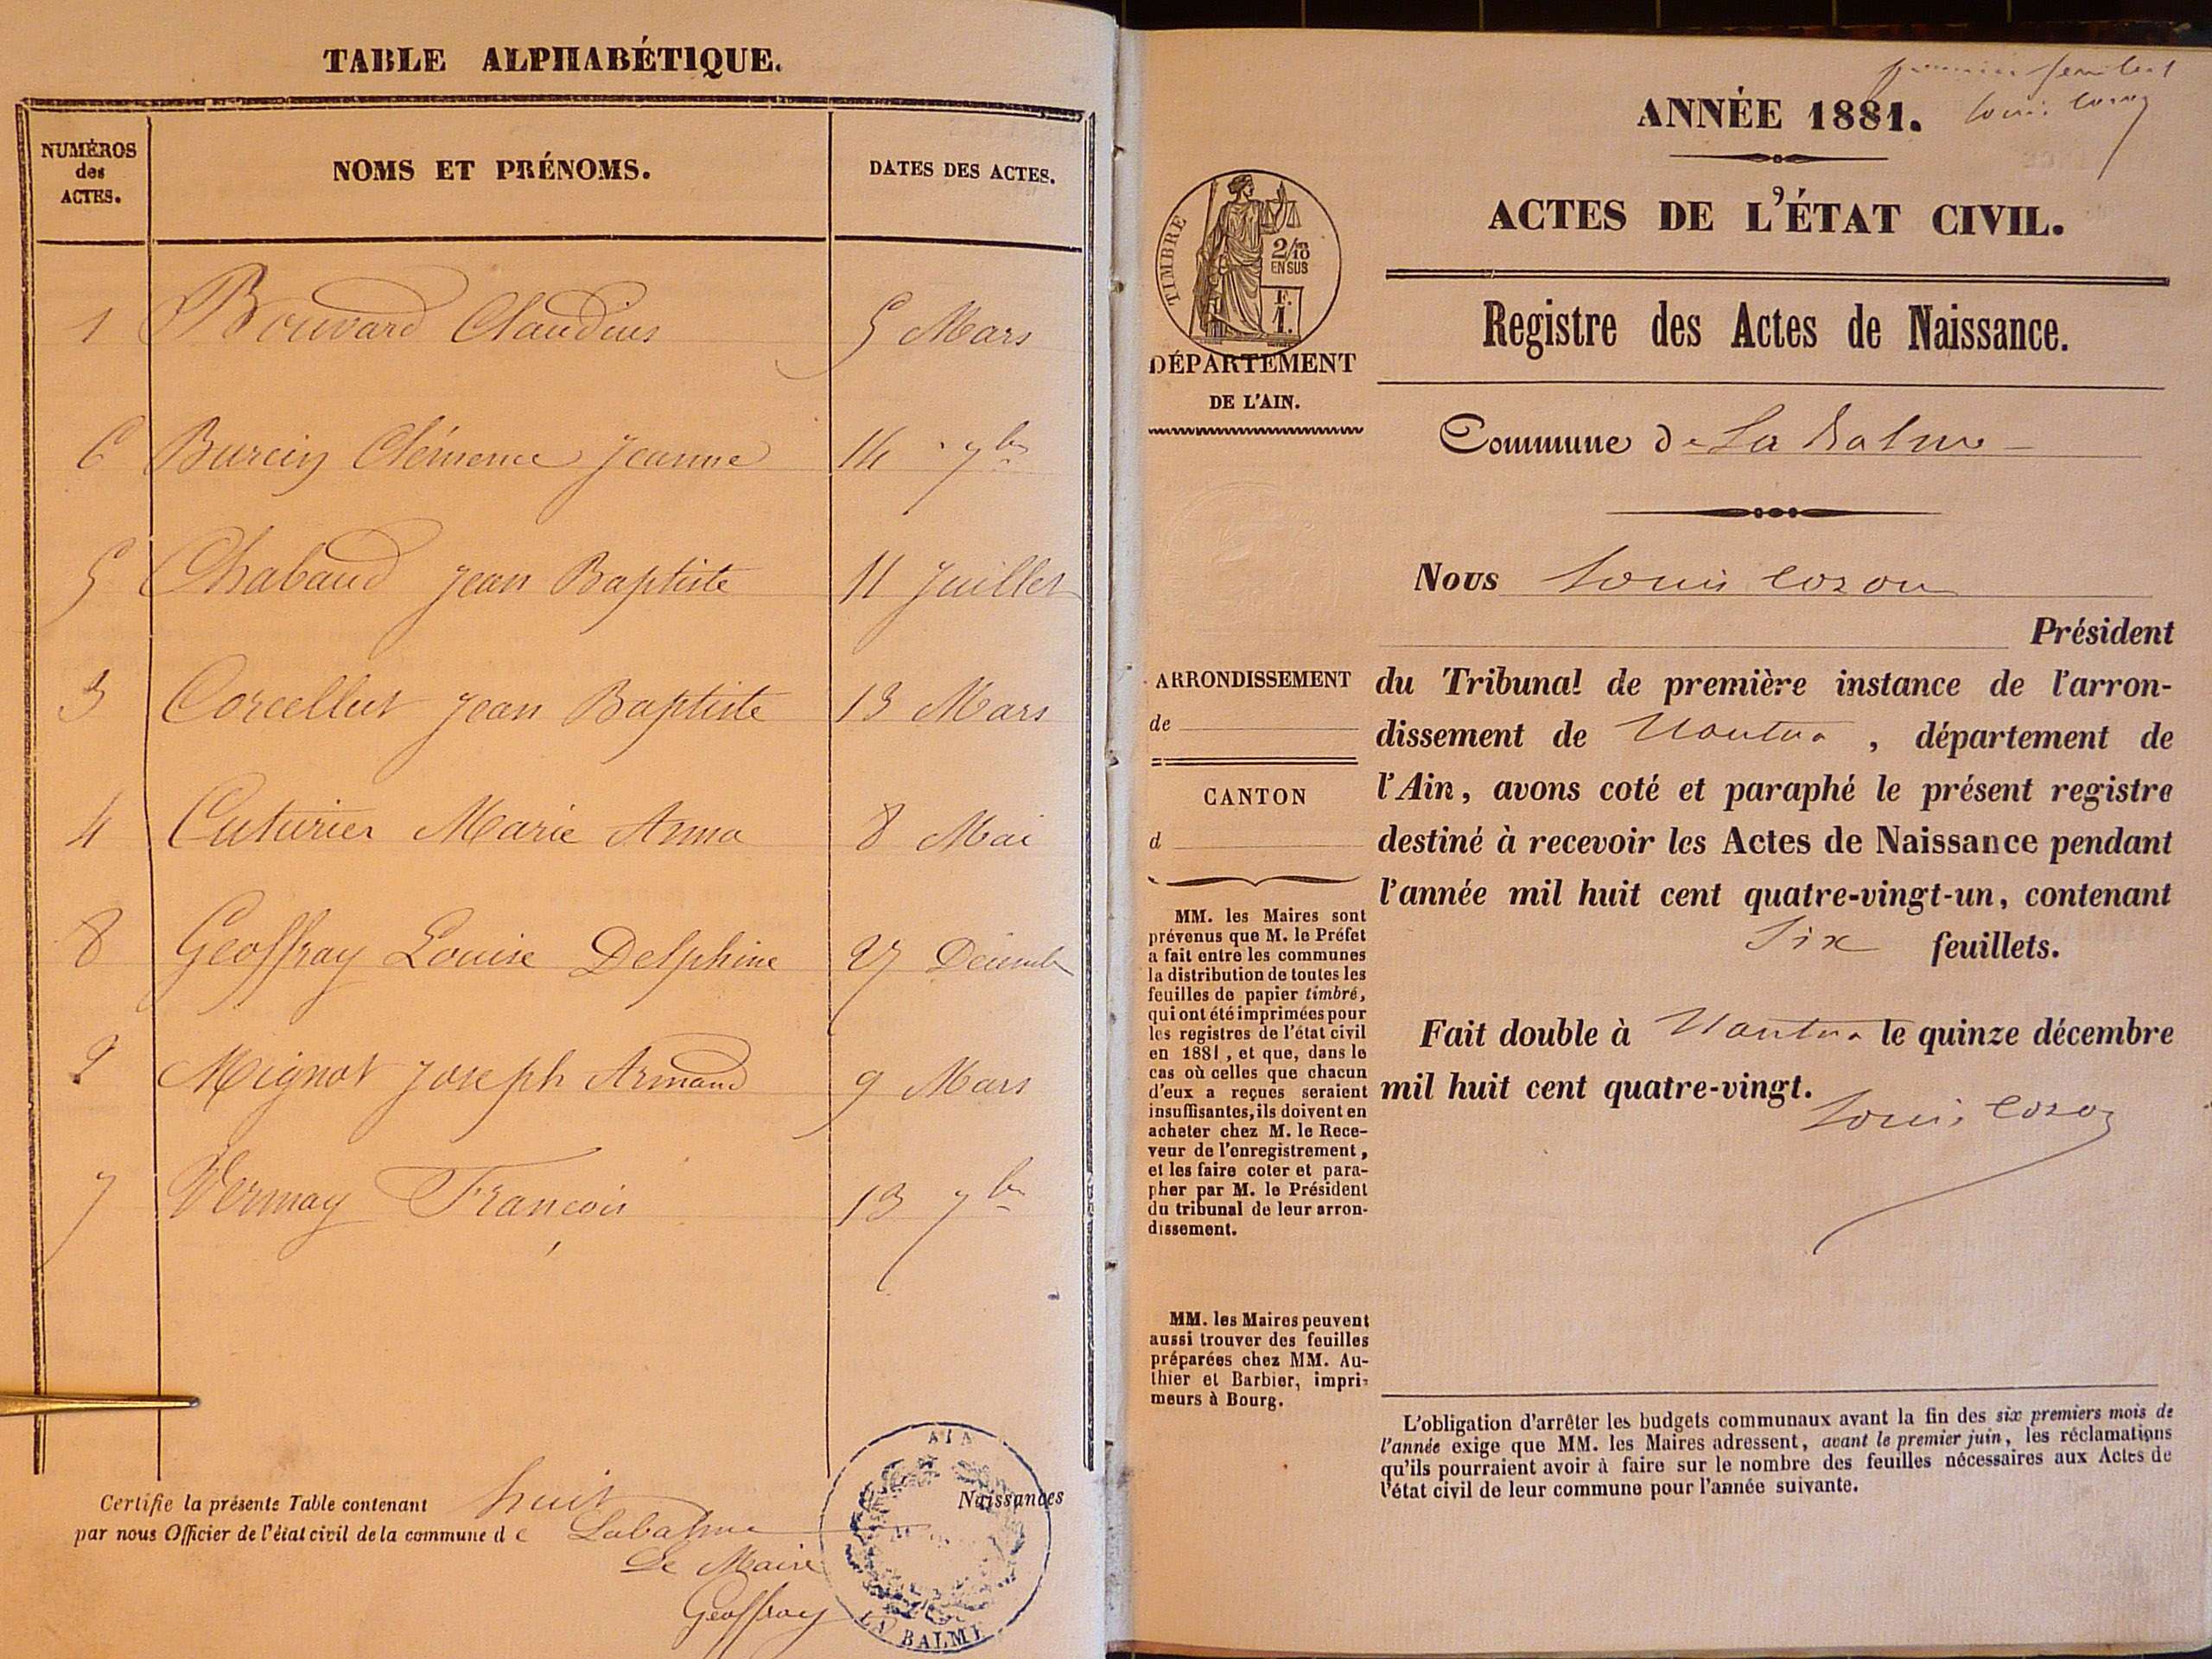 TABLE ALPHABÉTIQUE.
NUMÉROS des ACTES. NOMS ET PRÉNOMS. DATES DES ACTES.
1 Bouvard Claudius 5 Mars
6 Burein Clémence Jeanne 14 7bre
5 Chabaud Jean Baptiste 11 Juillet
3 Corcellut Jean Baptiste 13 Mars
4 Cuturier Marie Anna 8 Mai
8 Geoffray Louise Delphine 27 Décembre
2 Mignot Joseph Armand 9 Mars
7 Vermay François 13 7bre
Certifie la présente Table contenant huit Naissances
par nous Officier de l'état civil de la commune de Labalme
Le Maire
Geoffray
AIN
LA BALME
premier feuillet
Louis Cozon
ANNÉE 1881.
ACTES DE L'ÉTAT CIVIL.
TIMBRE
2/10 EN SUS
F. 1.
DÉPARTEMENT
DE L'AIN.
Registre des Actes de Naissance.
Commune de La Balme
Nous Louis Cozon
Président
du Tribunal de première instance de l'arron-
dissement de Nantua, département de
l'Ain, avons coté et paraphé le présent registre
destiné à recevoir les Actes de Naissance pendant
l'année mil huit cent quatre-vingt-un, contenant
Six feuillets.
Fait double à Nantua le quinze décembre
mil huit cent quatre-vingt.
Louis Cozon
ARRONDISSEMENT
de
CANTON
d
MM. les Maires sont
prévenus que M. le Préfet
a fait entre les communes
la distribution de toutes les
feuilles de papier timbré,
qui ont été imprimées pour
les registres de l'état civil
en 1881, et que, dans le
cas où celles que chacun
d'eux a reçues seraient
insuffisantes, ils doivent en
acheter chez M. le Rece-
veur de l'enregistrement,
et les faire coter et para-
pher par M. le Président
du tribunal de leur arron-
dissement.
MM. les Maires peuvent
aussi trouver des feuilles
préparées chez MM. Au-
thier et Barbier, impri-
meurs à Bourg.
L'obligation d'arrêter les budgets communaux avant la fin des six premiers mois de
l'année exige que MM. les Maires adressent, avant le premier juin, les réclamations
qu'ils pourraient avoir à faire sur le nombre des feuilles nécessaires aux Actes de
l'état civil de leur commune pour l'année suivante.